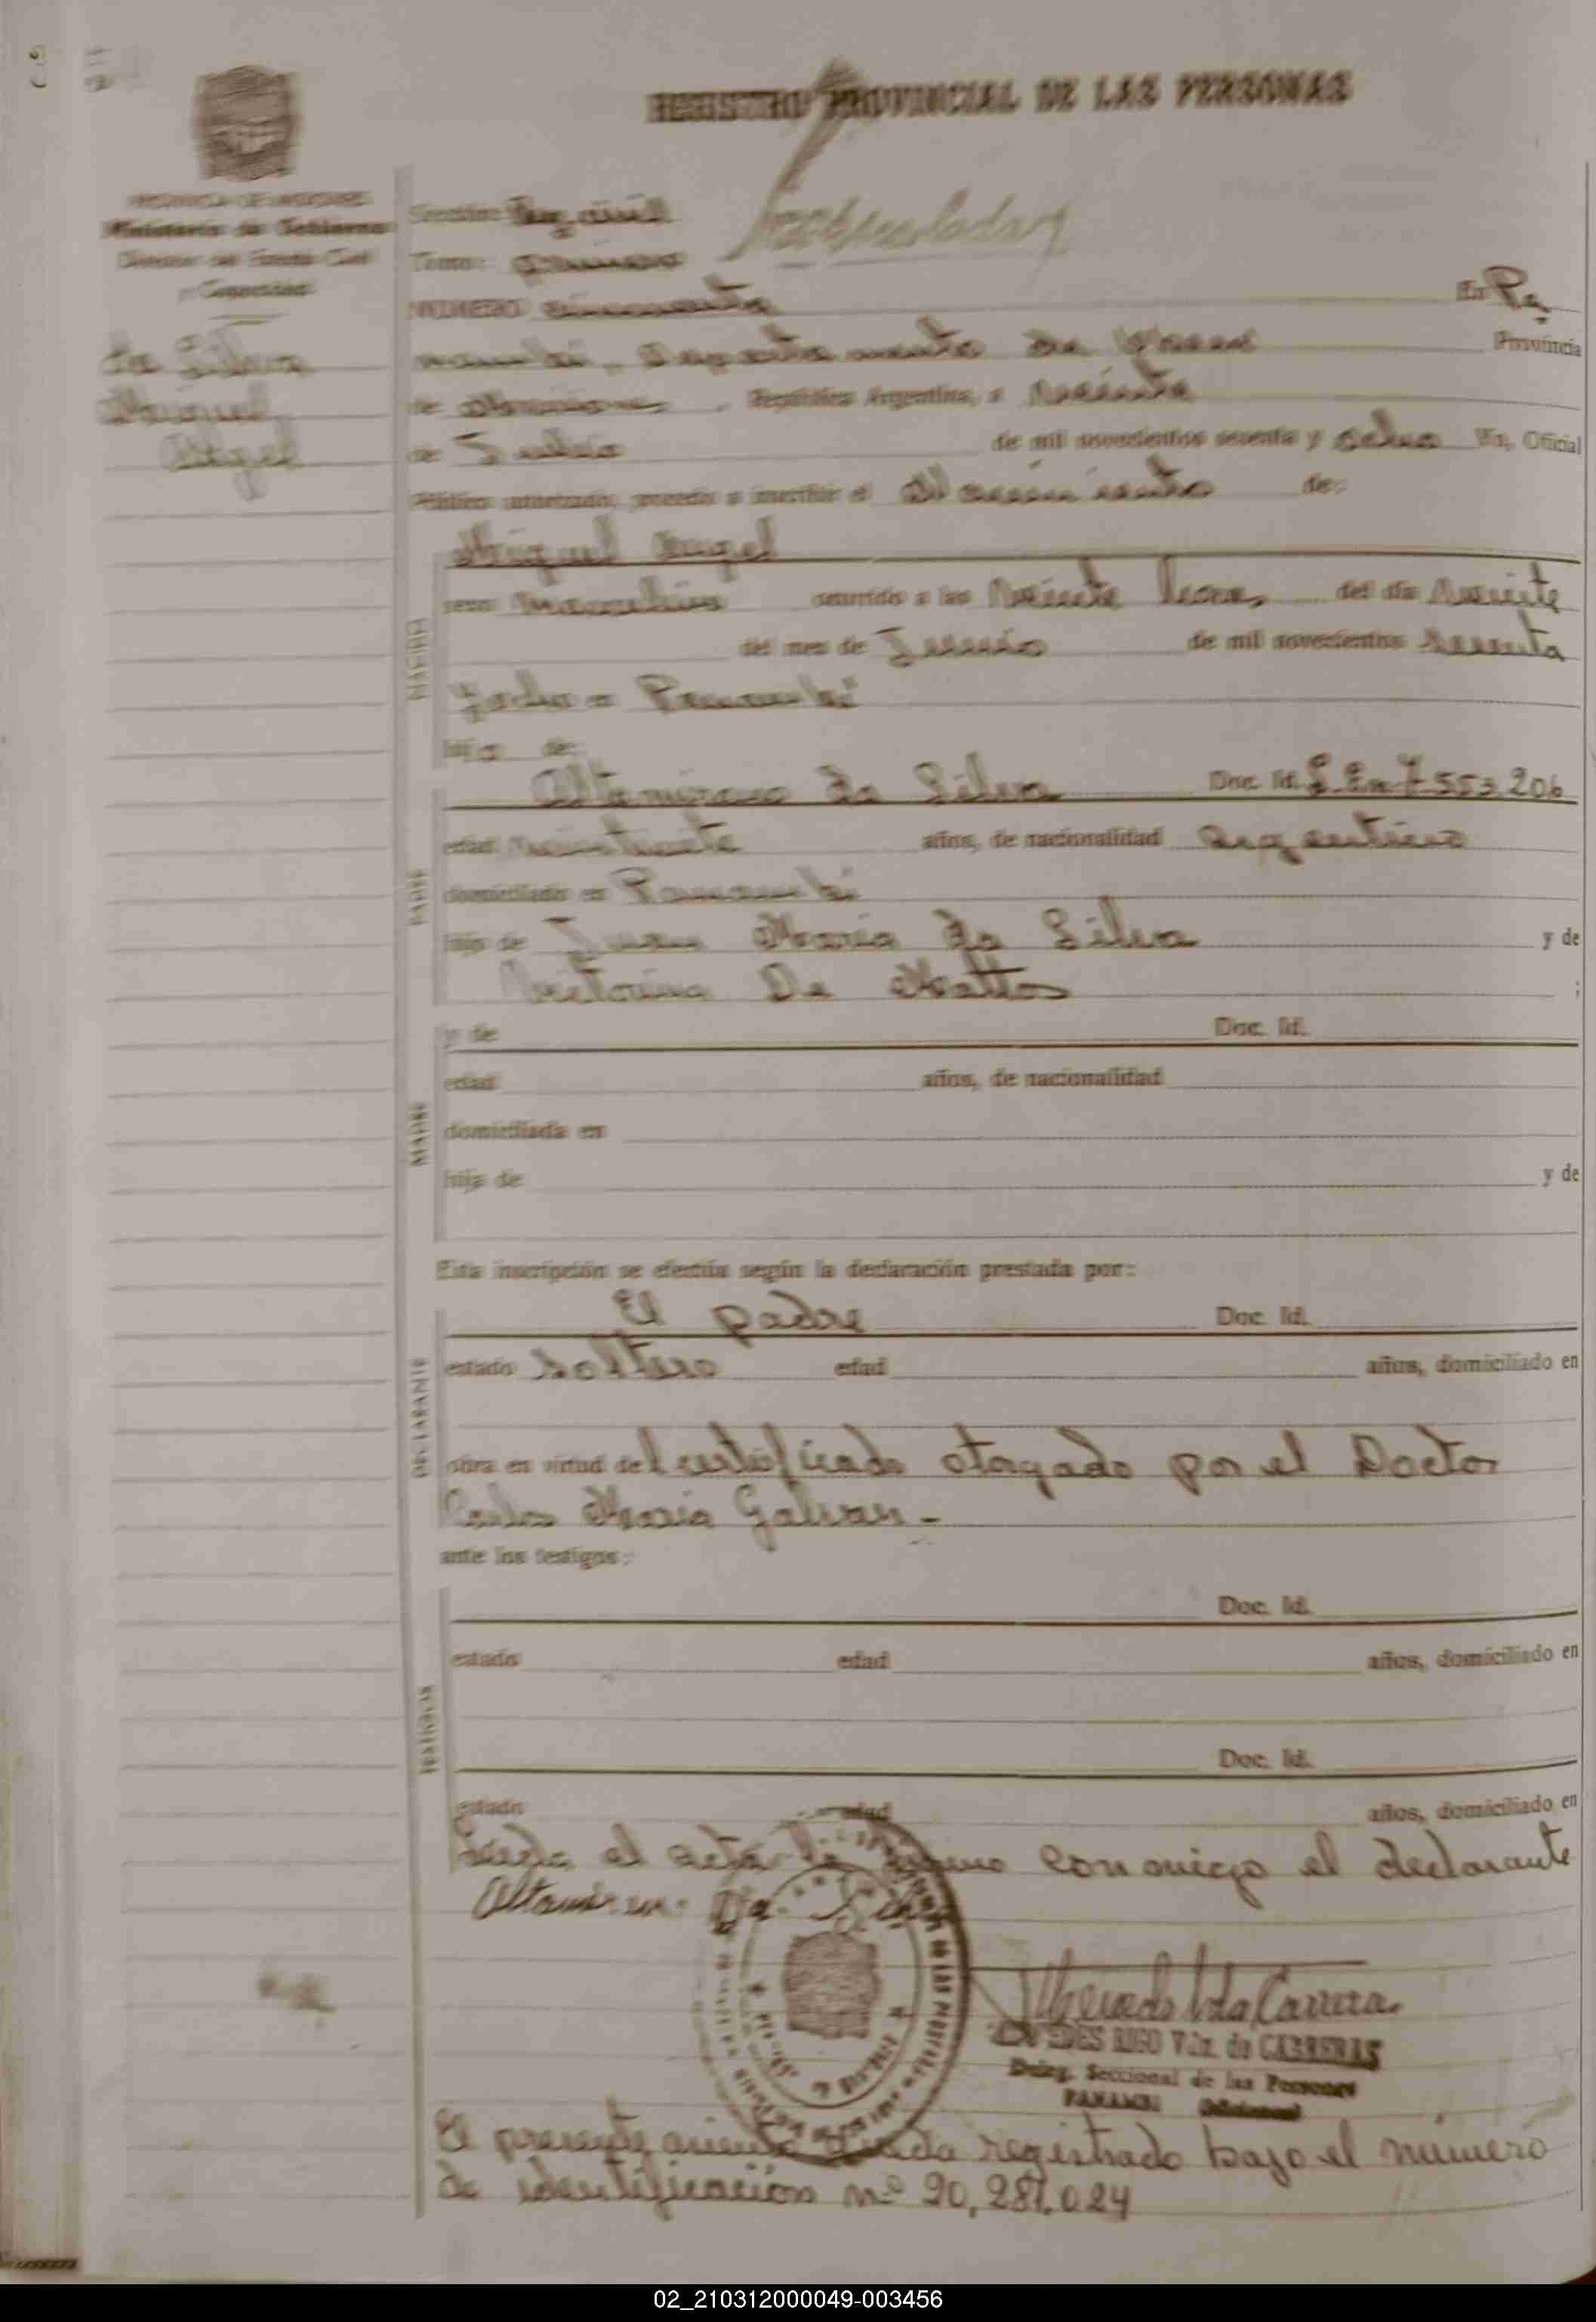 REGISTRO PROVINCIAL DE LAS PERSONAS
PROVINCIA DE MISIONES
Ministerio de Gobierno
Dirección de Estado Civil
y Capacidad
Sección:
Tomo: primero
NUMERO cincuenta En Pa
nambí, Departamento de Provincia
de Misiones, República Argentina, a veinte
de Julio de mil novecientos sesenta y ocho Yo, Oficial
Público autorizado, procedo a inscribir el Nacimiento de:
Da Silva
Miguel
Angel
Miguel Angel
sexo masculino ocurrido a las veinte horas del día veinte
del mes de Junio de mil novecientos sesenta
y ocho = Panambí
hijo de:
Altamirano da Silva Doc. Id. 7553206
edad años, de nacionalidad argentino
domiciliado en Panambí
hijo de Juan María da Silva y de
Victorina De Mattos ;
y de Doc. Id.
edad años, de nacionalidad
domiciliada en
hija de y de
Esta inscripción se efectúa según la declaración prestada por:
El padre Doc. Id.
estado soltero edad años, domiciliado en
obra en virtud del certificado otorgado por el Doctor
Carlos María Galvan -
ante los testigos:
Doc. Id.
estado edad años, domiciliado en
Doc. Id.
estado edad años, domiciliado en
Leída el acta la conmigo el declarante
Da Silva
RIGO Vda. de CARRERAS
Deleg. Seccional de las Personas
PANAMBI (Misiones)
El presente asiento queda registrado bajo el número
de identificación nº 20,281.024
PADRE
MADRE
DECLARANTE
TESTIGOS
02_210312000049-003456